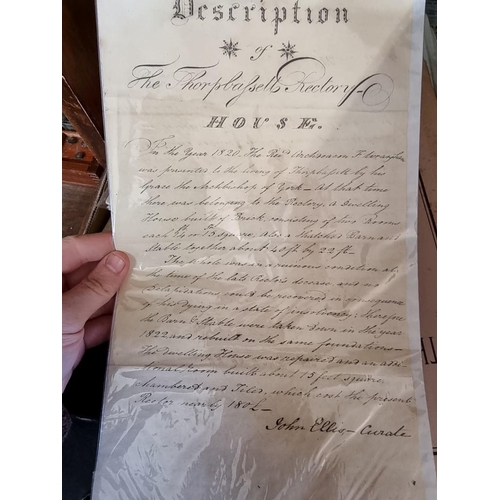 Description
of
The Thorpbassett Rectory
HOUSE.
In the Year 1820. The Revd. Archdeacon
was presented to the living of Thorpbassett by his
Grace the Archbishop of York – At that time
there was belonging to the Rectory, a Dwelling
House built of Brick, consisting of two rooms
each square, also a Thatched Barn and
Stable together about 40 ft by 22 ft –
The whole was in a ruinous condition at
the time of the late Rector's disease and no
Delapidations could be recovered in consequence
of his dying in a state of insolvency: Therefore
the Barn & Stable were taken down in the year
1822 and rebuilt on the same foundations –
The dwelling House was repaired and an addi
tional room built about 15 feet square
chambered and Tiled, which cost the present
Rector nearly 180£ –
John Ellis – Curate